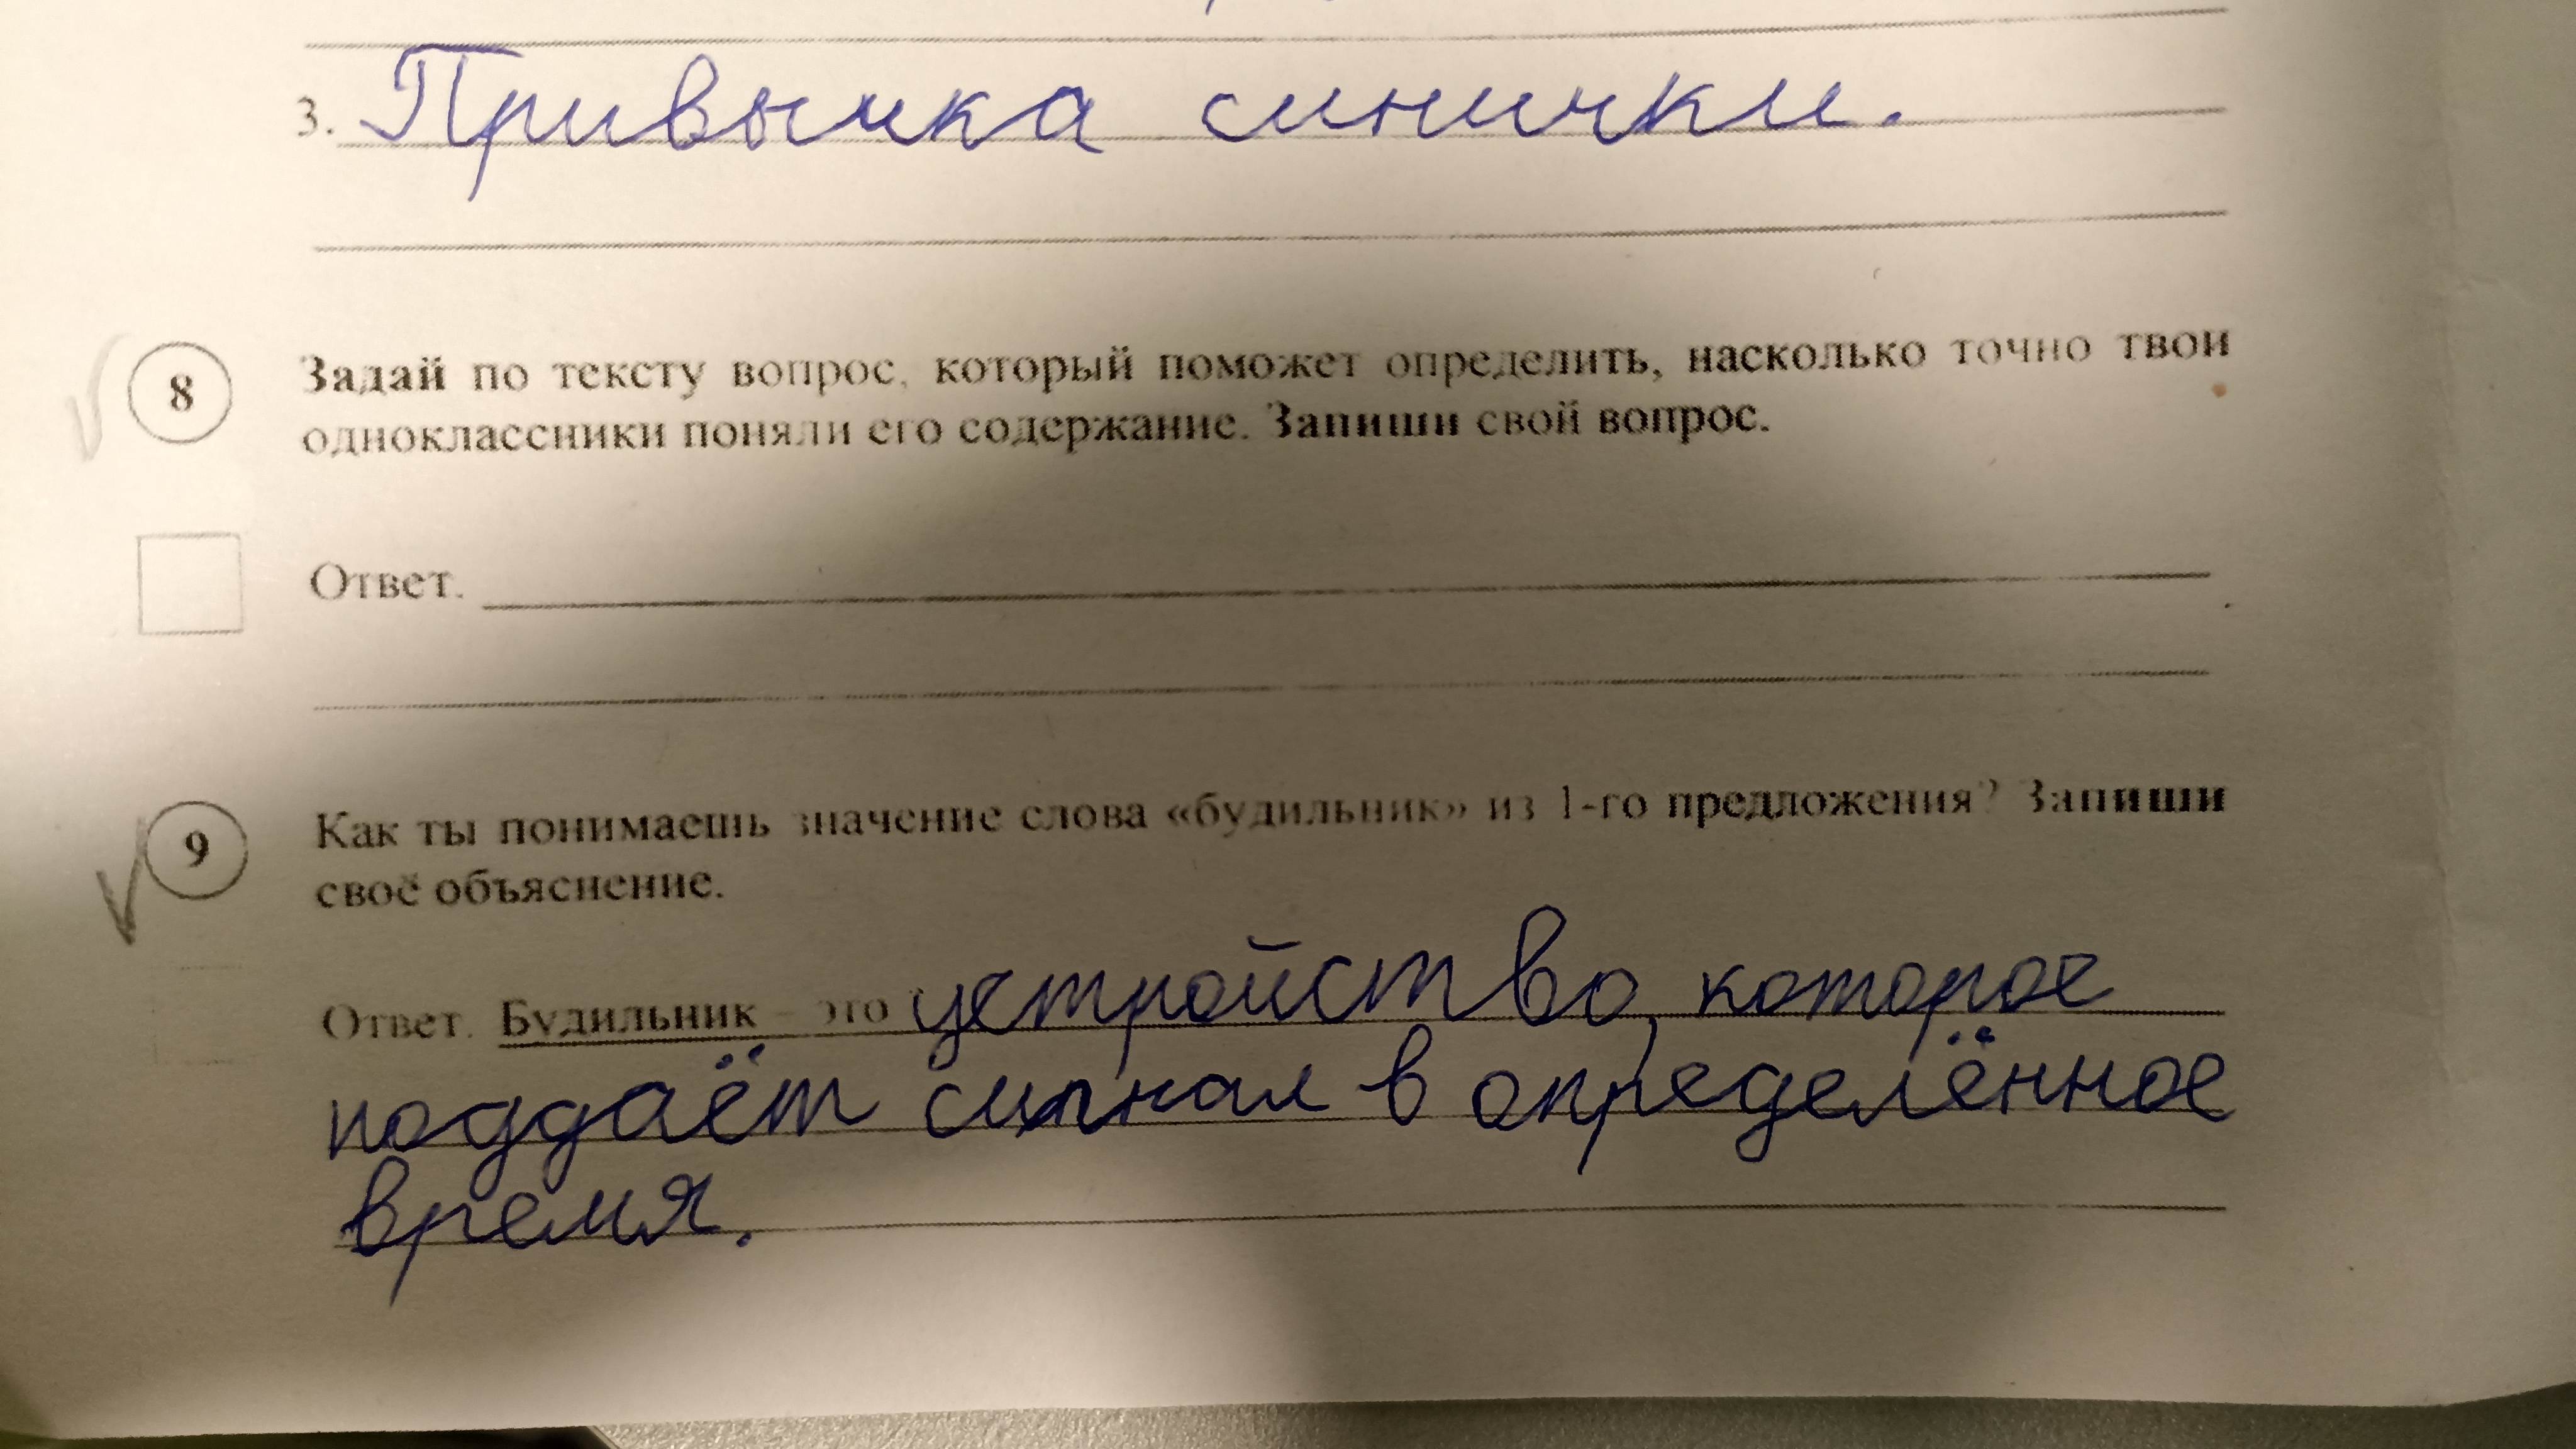 3. Привычка синички.
8 Задай по тексту вопрос, который поможет определить, насколько точно твои
одноклассники поняли его содержание. Запиши свой вопрос.
Ответ.
9 Как ты понимаешь значение слова «будильник» из 1-го предложения? Запиши
своё объяснение.
Ответ. Будильник – это устройство, которое
поддаёт сигнал в определённое
время.